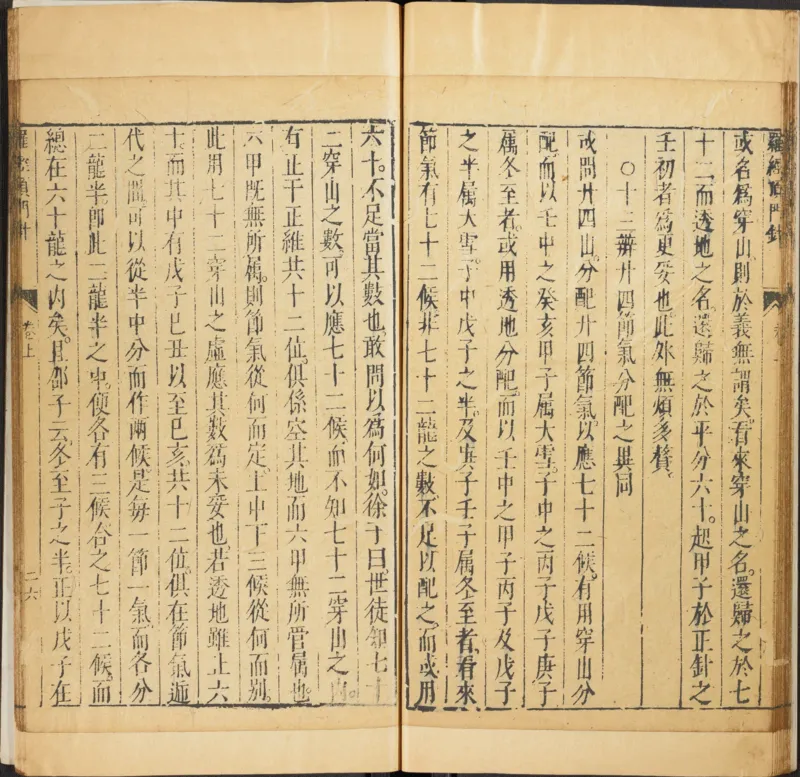 羅經頂門針
或名爲穿山則於義無謂矣。看來穿山之名。還歸之於七
十二而透地之名。還歸之於平分六十。起甲子於正針之
壬初者爲更妥也。此外無煩多贅
○十三辨廿四節氣分配之異同
或問廿四山。分配廿四節氣。以應七十二候。有用穿山分
配而以壬中之癸亥甲子属大雪。子中之丙子戊子庚子
属冬至者。或用透地分配。而以壬中之甲子丙子及戊子
之半属大雪。子中戊子之半。及庚子壬子属冬至者。看來
節氣有七十二候非七十二龍之數。不足以配之。而或用
六十。不足當其數也。敢問以爲何如。徐子曰。世徒知七十
二穿山之數。可以應七十二候而不知七十二穿山之内
有止于正維共十二位。俱係空其地而六甲無所管属也。
六甲既無所属。則節氣從何而定。上中下三候從何而别。
此用七十二穿山之虛應其數爲未妥也。若透地雖止六
十。而其中有戊子己丑以至己亥。共十二位。俱在節氣遁
代之間可以從半中分而作兩候是每一節一氣而各分
二龍半。即此二龍半之中。便各有三候合之七十二候。而
總在六十龍之内矣。且邵子云。冬至子之半。正以戊子在
羅經頂門針
卷上
二六